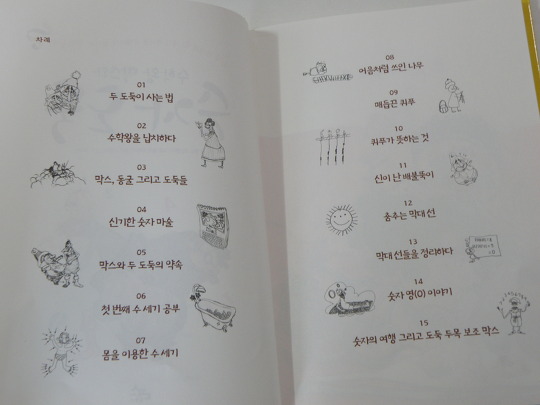 차례
01
두 도둑이 사는 법
02
수학왕을 납치하다
03
막스, 동굴 그리고 도둑들
04
신기한 숫자 마술
05
막스와 두 도둑의 약속
06
첫 번째 수 세기 공부
07
몸을 이용한 수 세기
08
여름처럼 쓰인 나무
09
매듭끈 퀴푸
10
퀴푸가 뜻하는 것
11
신이 난 배불뚝이
12
춤추는 막대 선
13
막대 선들을 정리하다
14
숫자 영(0) 이야기
15
숫자의 여행 그리고 도둑 두목 보조 막스